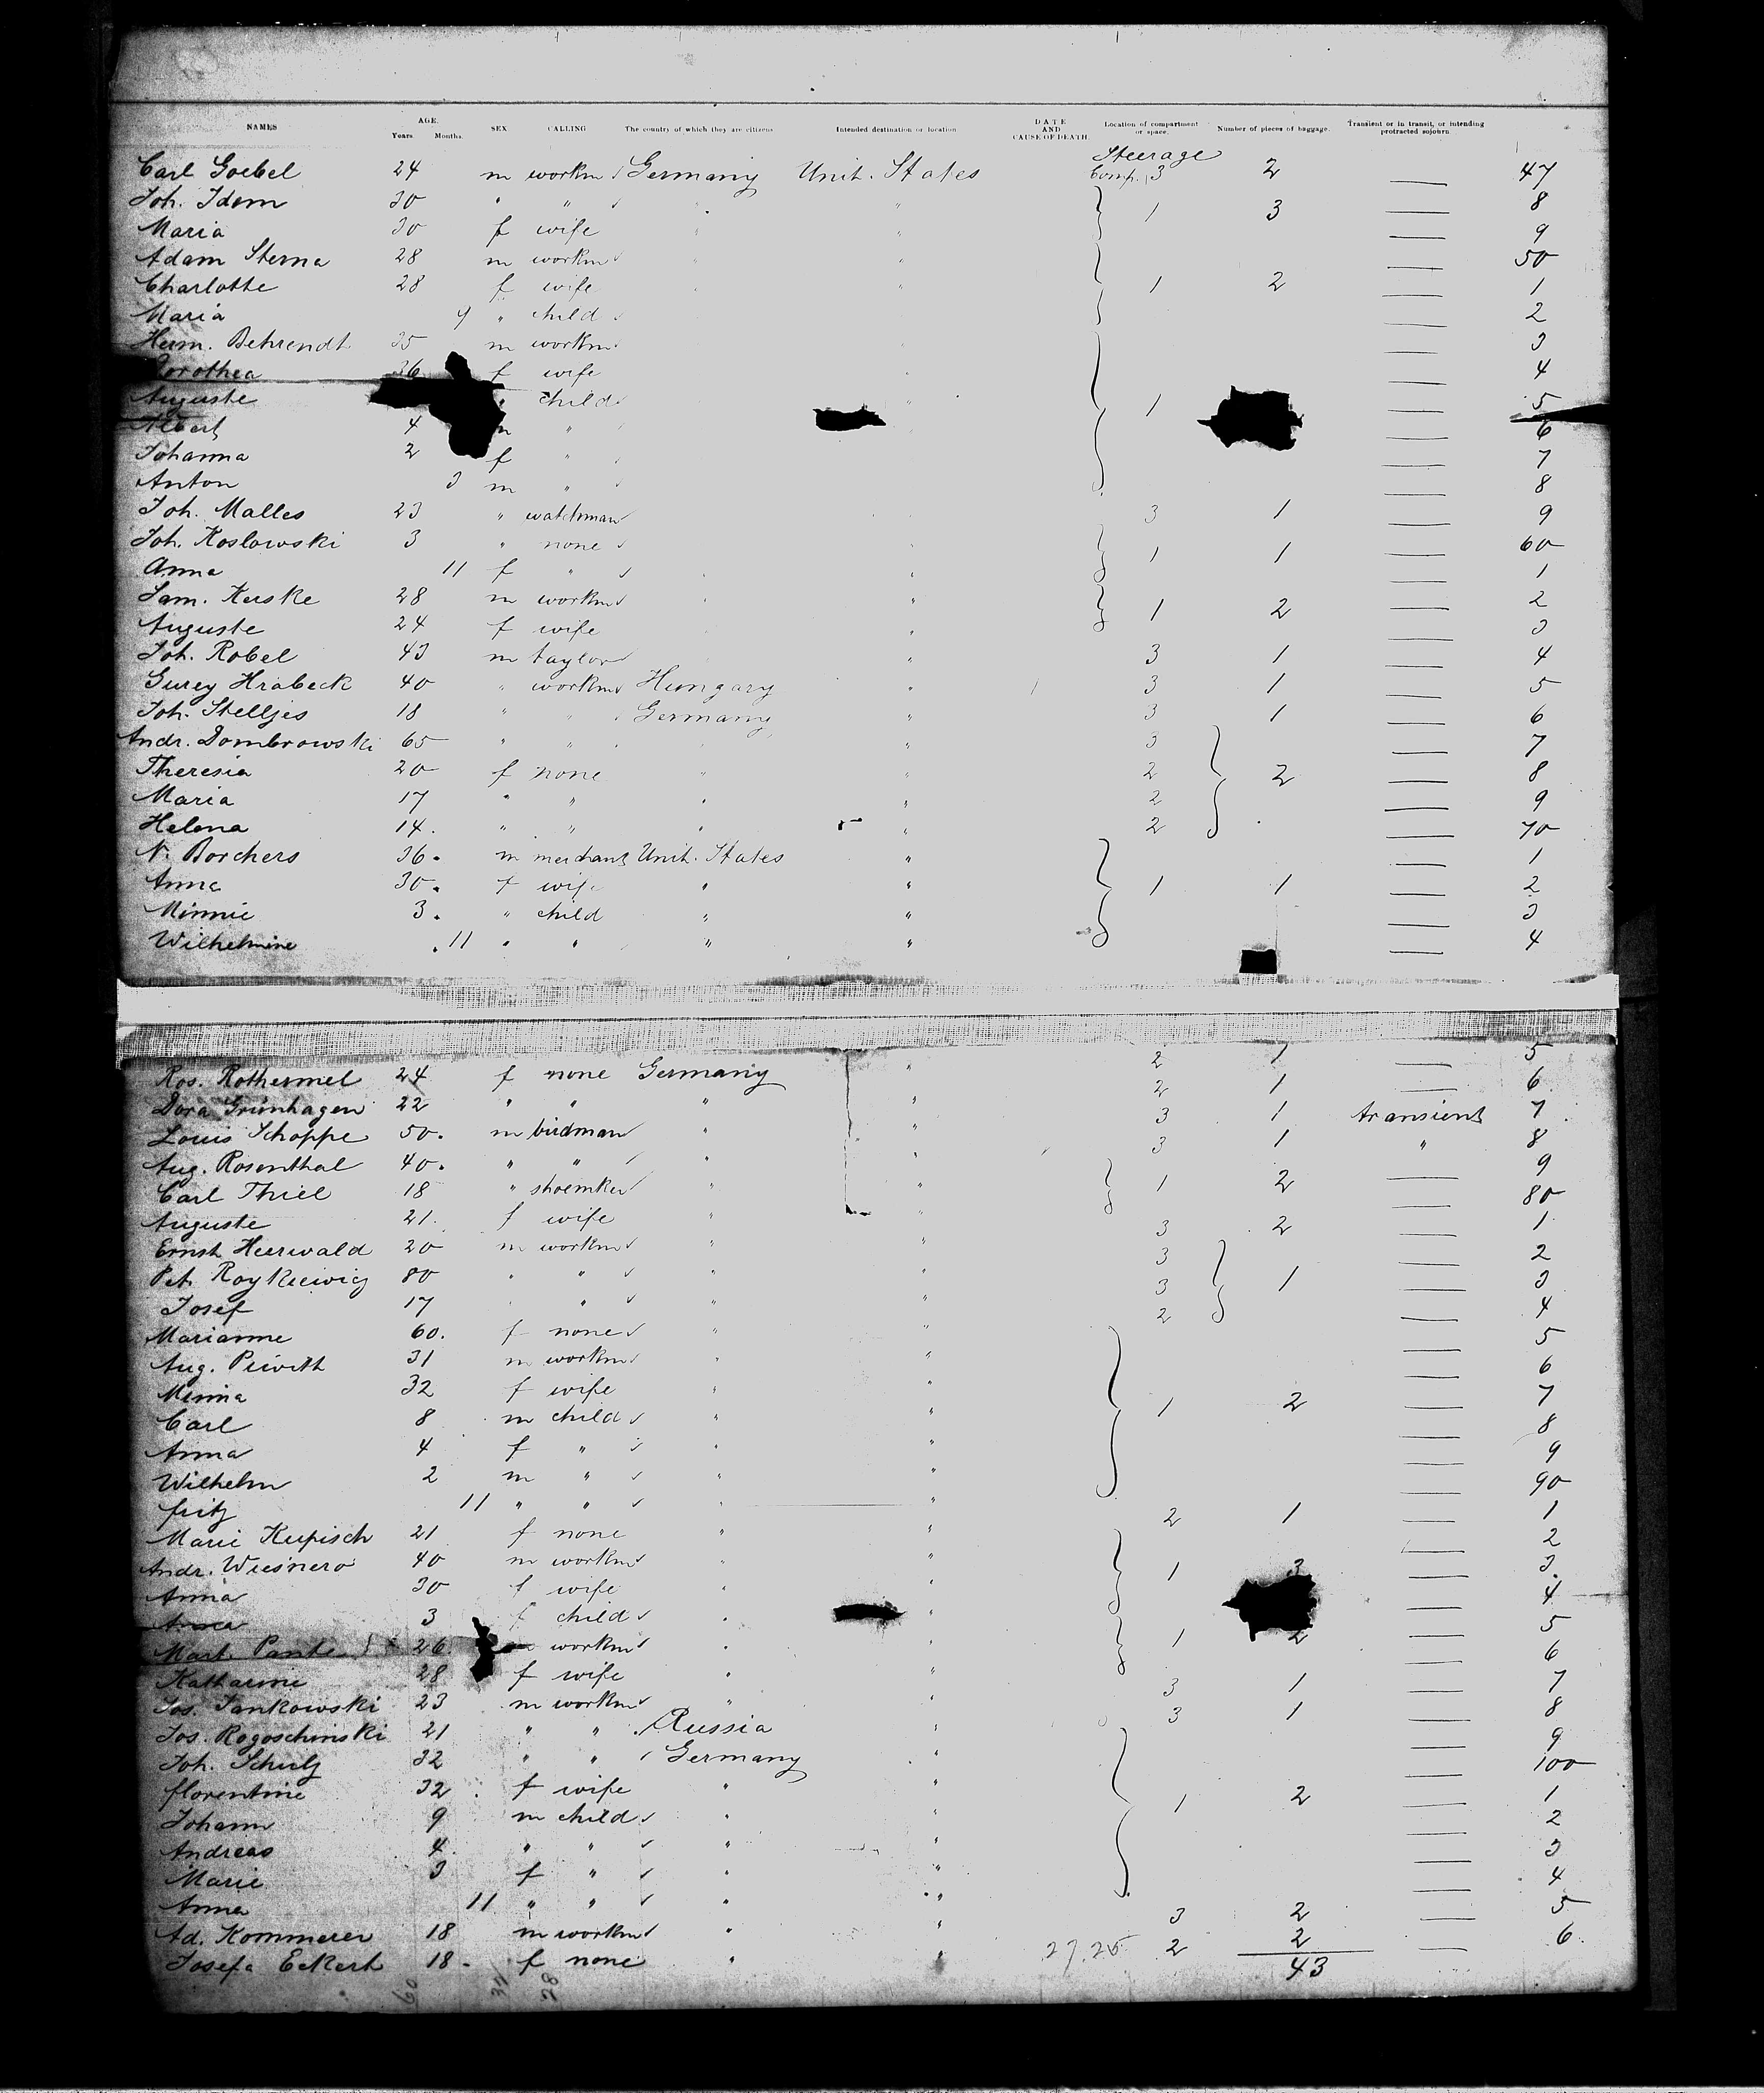 NAMES AGE. Years. Months. SEX CALLING The country of which they are citizens Intended destination or location DATE AND CAUSE OF DEATH. Location of compartment or space. Number of pieces of baggage. Transient or in transit, or intending protracted sojourn.
Steerage
Carl Goebel 24 m workm Germany Unit. States Comp. 3 2 — 47
Joh. Idem 30 " " " " 1 3 — 8
Maria 30 f wife " " — 9
Adam Sterna 28 m workm " " — 50
Charlotte 28 f wife " " 1 2 — 1
Maria 9 " child — 2
Herm. Behrendt 35 m workm — 3
Dorothea 36 f wife — 4
Auguste " child 1 — 5
Albert 4 m " — 6
Johanna 2 f " — 7
Anton 3 m " — 8
Joh. Malles 23 " watchman 3 1 — 9
Joh. Koslowski 3 " none " 1 1 — 60
Anna 11 f " " " — 1
Sam. Kerske 28 m workm " " 1 2 — 2
Auguste 24 f wife " " — 3
Joh. Robel 43 m taylor " 3 1 — 4
Gurey Hrabeck 40 " workm Hungary " 3 1 — 5
Joh. Stelljes 18 " " Germany " 3 1 — 6
Andr. Dombrowski 65 " " " " 3 — 7
Theresia 20 f none " " 2 2 — 8
Maria 17 " " " " 2 — 9
Helena 14. " " " " 2 — 70
N. Borchers 36. m merchant Unit. States " — 1
Anna 30. f wife " " 1 1 — 2
Minnie 3. " child " " — 3
Wilhelmine 11 " " " " — 4
Ros. Rothermel 24 f none Germany " 2 1 — 5
Dora Grünhagen 22 " " " " 2 1 — 6
Louis Schoppe 50. m birdman " " 3 1 transient 7
Aug. Rosenthal 40. " " " " 3 1 " 8
Carl Thiel 18 " shoemker " " 1 2 — 9
Auguste 21. f wife " " — 80
Ernst Heerwald 20 m workm " " 3 2 — 1
Pet. Roykiewicz 80 " " " " 3 — 2
Josef 17 " " " " 3 1 — 3
Marianne 60. f none " " 2 — 4
Aug. Piwitt 31 m workm " " — 5
Minna 32 f wife " " — 6
Carl 8 m child " " 1 2 — 7
Anna 4 f " " " — 8
Wilhelm 2 m " " " — 9
Fritz 11 " " " " — 90
Marie Kupisch 21 f none " " 2 1 — 1
Andr. Wiesnero 40 m workm " " — 2
Anna 30 f wife " " 1 3 — 3
Anna 3 f child " " — 4
Mart. Pante 26 workm " " 1 2 — 5
Katharine 28 f wife " " — 6
Jos. Jankowski 23 m workm " " 3 1 — 7
Jos. Rogoschinski 21 " " Russia " 3 1 — 8
Joh. Schulz 32 " " Germany " — 9
Florentine 32 f wife " " — 100
Johann 9 m child " " 1 2 — 1
Andreas 4 " " " " — 2
Marie 3 f " " " — 3
Anna 11 " " " " — 4
Ad. Kommerer 18 m workm " " 3 2 — 5
Josefa Eckert 18. f none " " 27.25 2 2 — 6
60 32 28 43